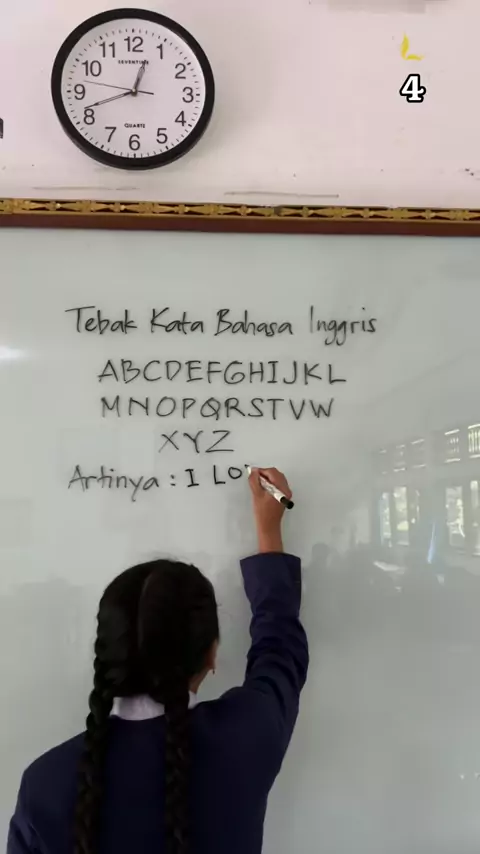 11 12 1
10 2
9 3
8 4
7 6 5
SEVENTINE
QUARTZ
4
Tebak Kata Bahasa Inggris
ABCDEFGHIJKL
MNOPQRSTVW
XYZ
Artinya : I LO